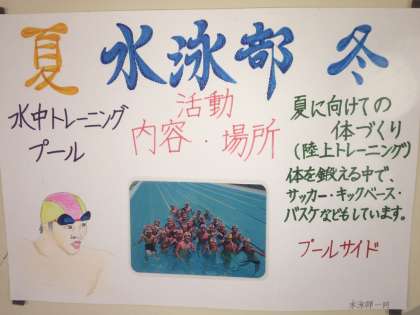 夏 水泳部 冬
水中トレーニング
プール
活動
内容・場所
夏に向けての
体づくり
(陸上トレーニング)
体を鍛える中で、
サッカー・キックベース・
バスケなどもしています。
プールサイド
水泳部一同